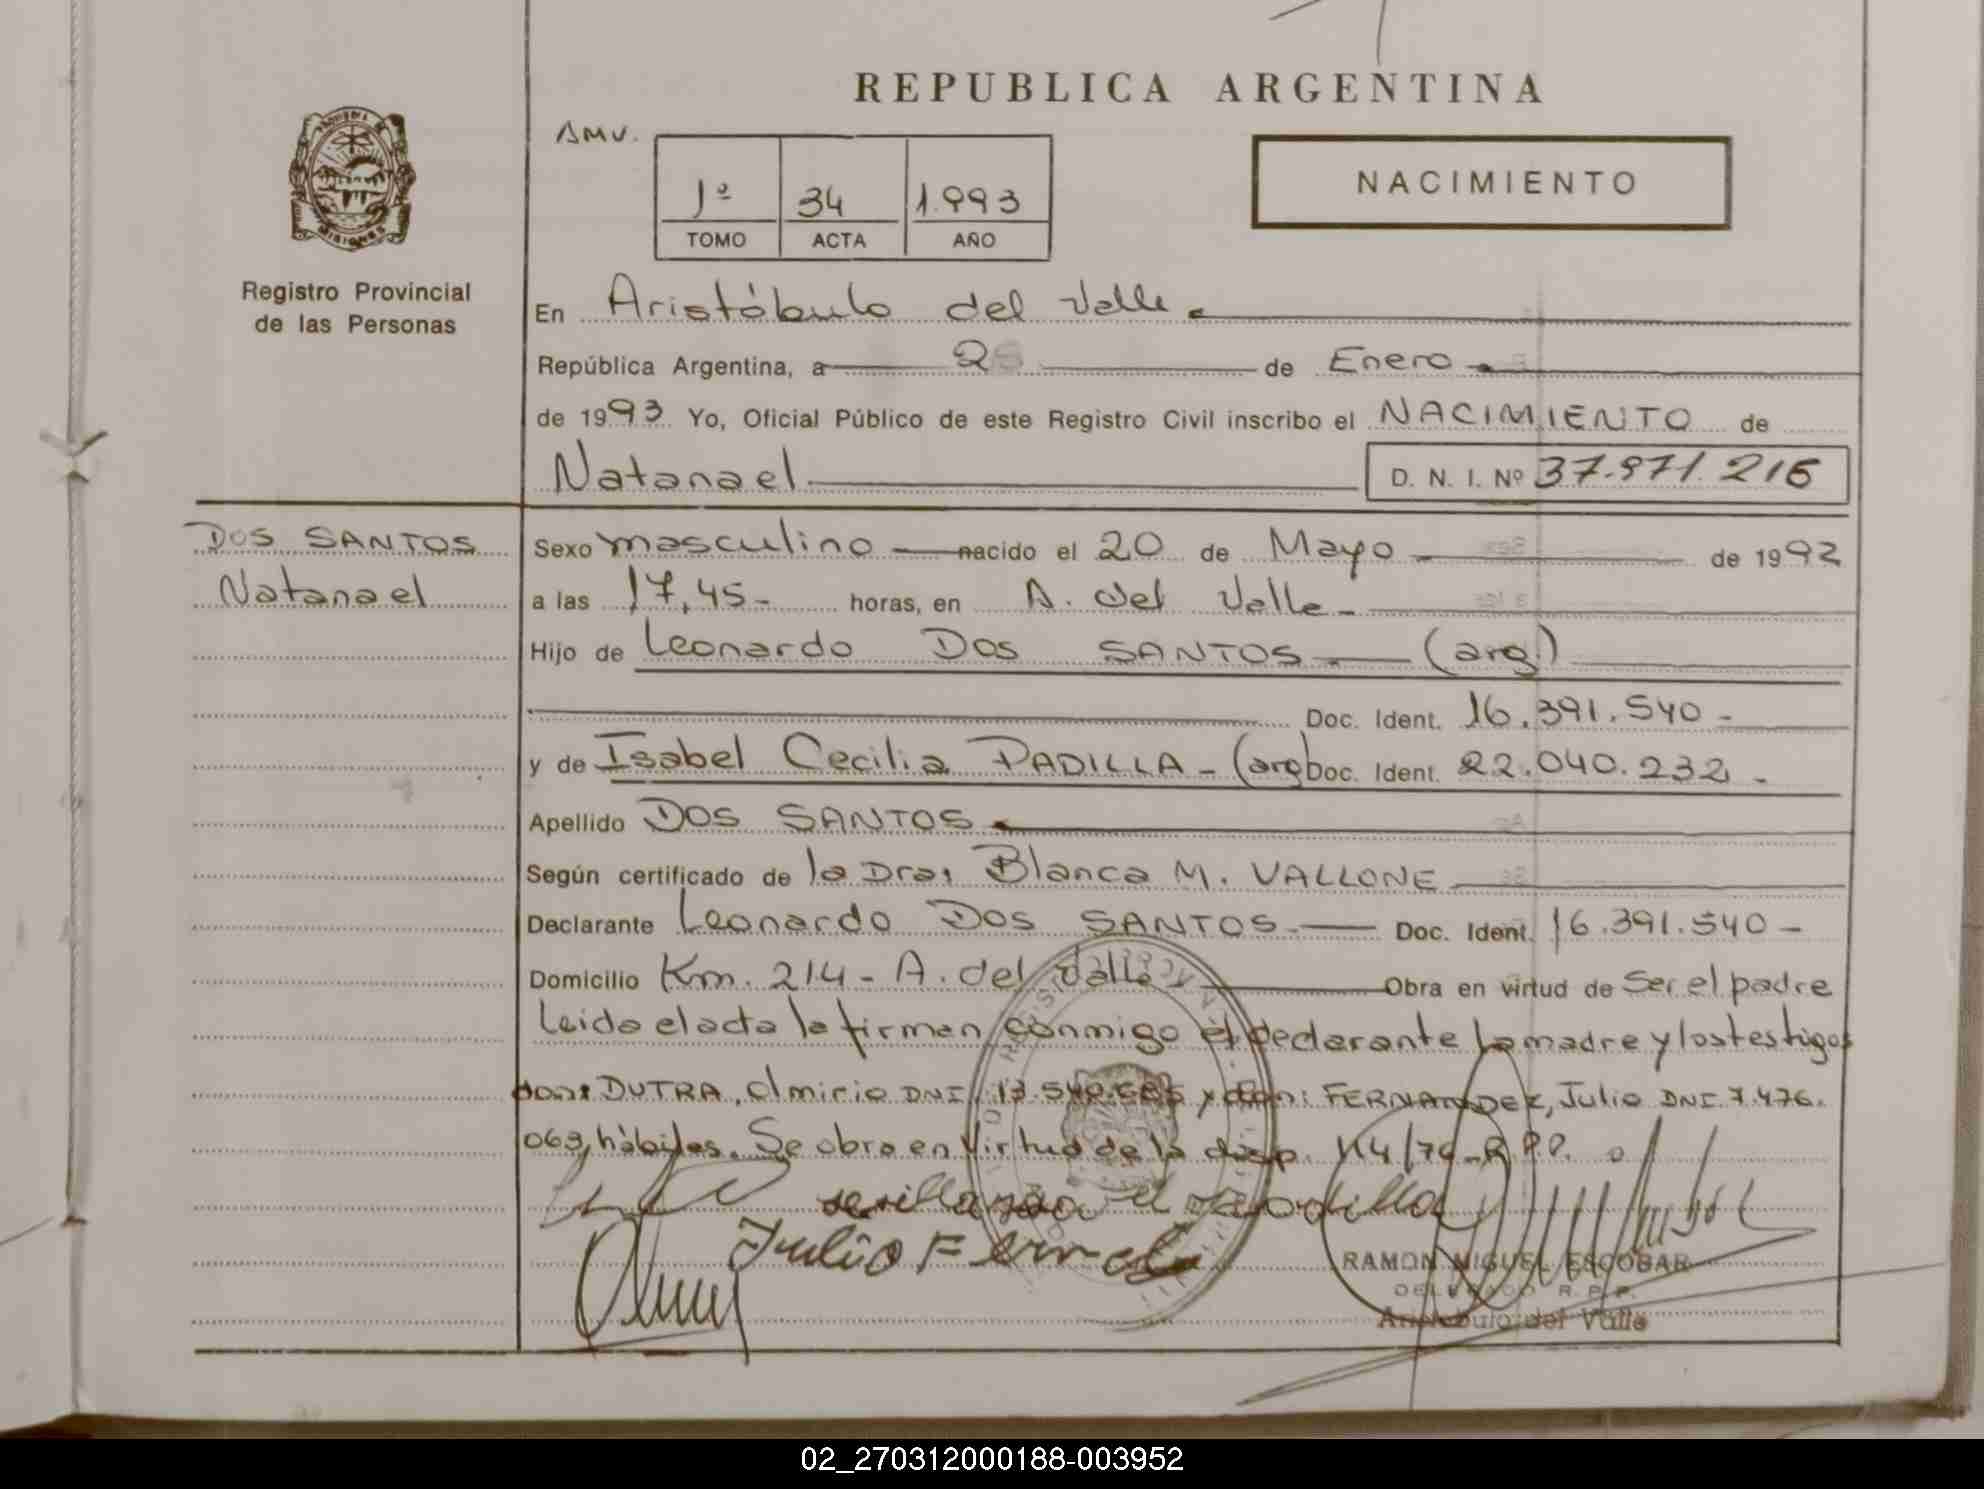 REPUBLICA ARGENTINA
AMV.
1º 34 1.993
TOMO ACTA AÑO
NACIMIENTO
MISIONES
Registro Provincial
de las Personas
En Aristóbulo del Valle
República Argentina, a de Enero
de 1993 Yo, Oficial Público de este Registro Civil inscribo el NACIMIENTO de
Natanael D. N. I. Nº 37.971.216
DOS SANTOS
Natanael
Sexo masculino nacido el 20 de Mayo de 1992
a las 17,45- horas, en A. del Valle-
Hijo de Leonardo DOS SANTOS (arg)
Doc. Ident. 16.391.540-
y de Isabel Cecilia PADILLA-(arg) Doc. Ident. 22.040.232-
Apellido DOS SANTOS
Según certificado de la Dra. Blanca M. VALLONE
Declarante Leonardo DOS SANTOS Doc. Ident. 16.391.540-
Domicilio Km. 214-A. del Valle Obra en virtud de Ser el padre
Leida el acta la firman conmigo el declarante la madre y los testigos
don: DUTRA, Almirio DNI. y don: FERNANDEZ, Julio DNI 7.476.
063, hábiles. Se obra en virtud de la disp. 114/74-R.P.P.
Julio
RAMON MIGUEL ESCOBAR
DELEGADO R.P.P.
Aristobulo del Valle
02_270312000188-003952